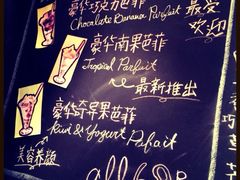 豪华巧克力芭菲
Chocolate Banana Parfait
最受
欢迎
豪华南果芭菲
Tropical Parfait
最新推出
豪华奇异果芭菲
Kiwi & Yogurt Parfait
美容养颜